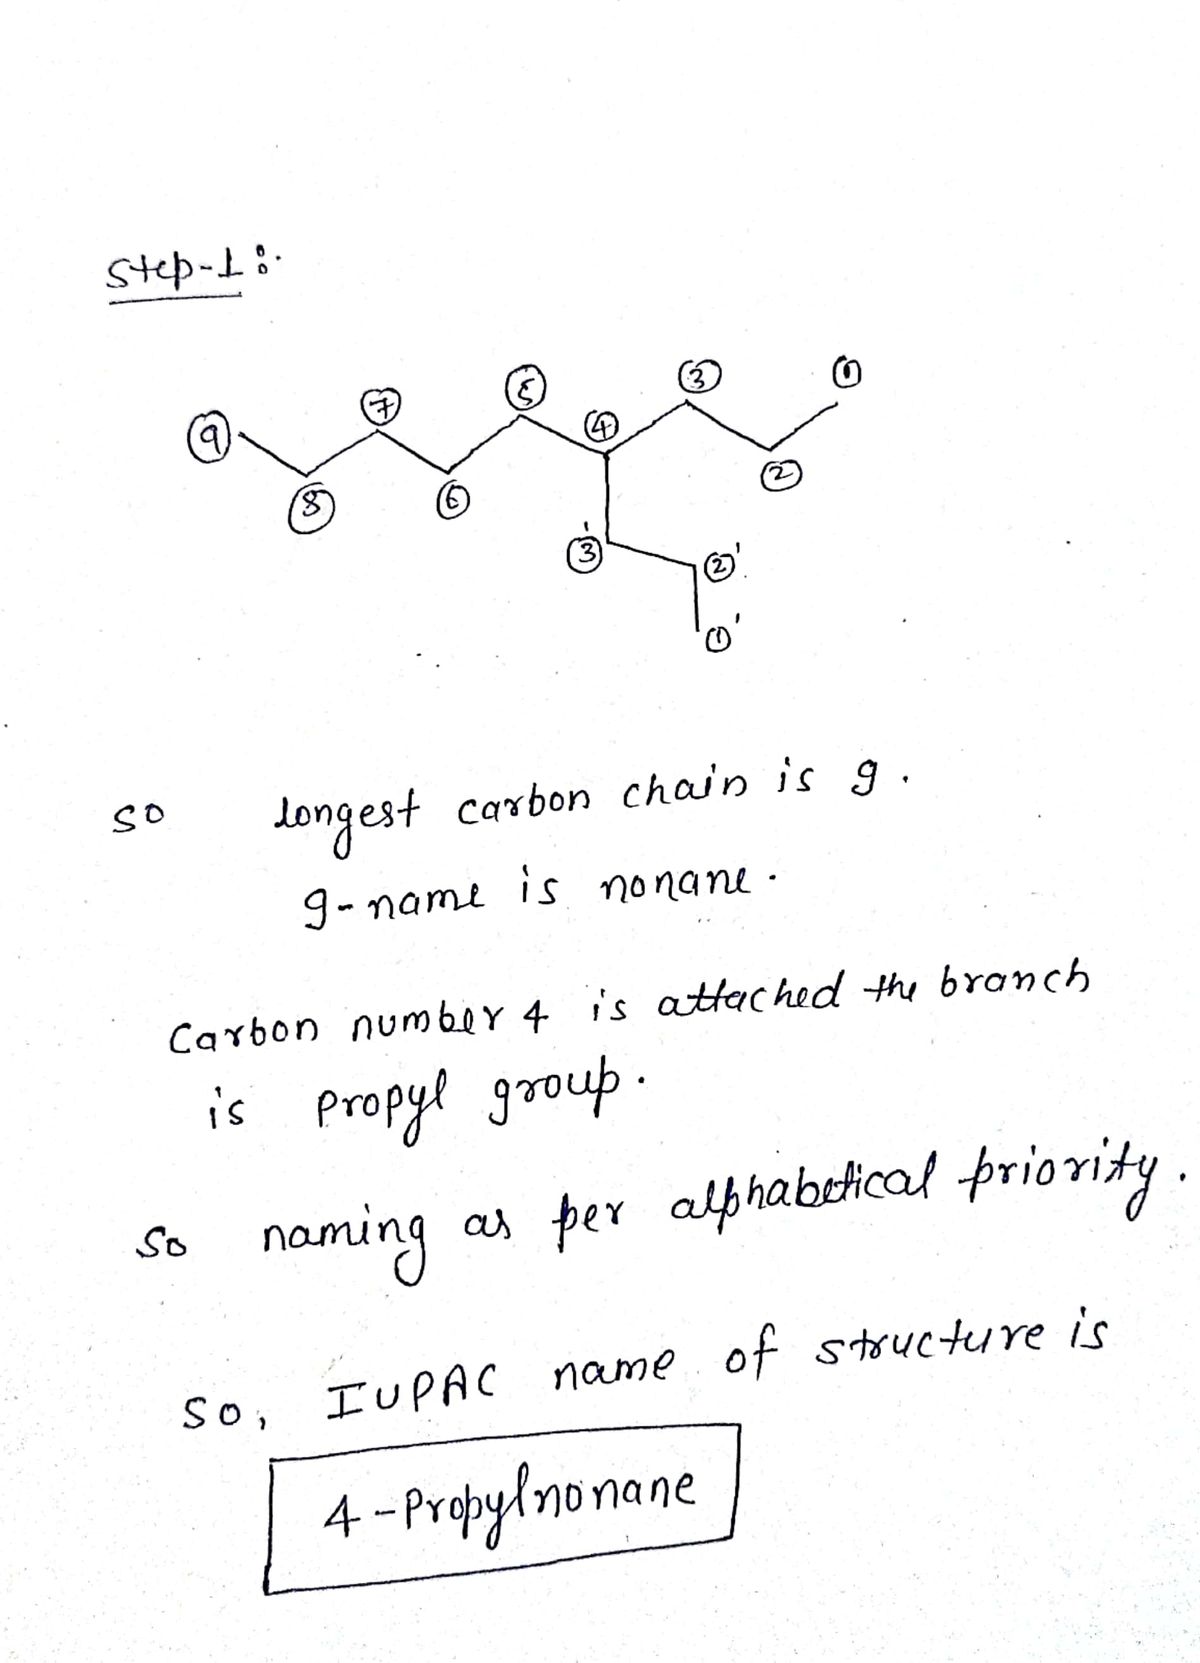 Step-1:-
9 8 7 6 5 4 3 2 1
3' 2' 1'
so longest carbon chain is 9.
9-name is nonane.
Carbon number 4 is attached the branch
is propyl group.
So naming as per alphabetical priority.
So, IUPAC name of structure is
4-Propylnonane